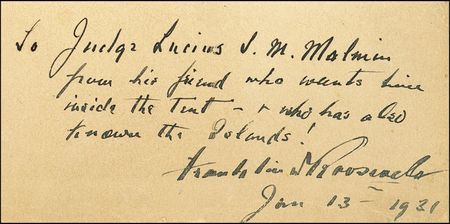 To Judge Lucius J. M. Malmin
from his friend who wants him
inside the tent – & who has also
known the Islands!
Franklin D Roosevelt
Jan 13 – 1931